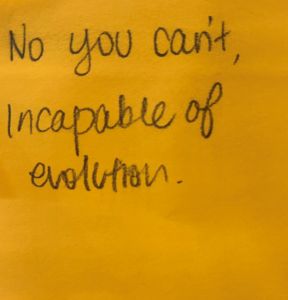 No you can't,
Incapable of
evolution.